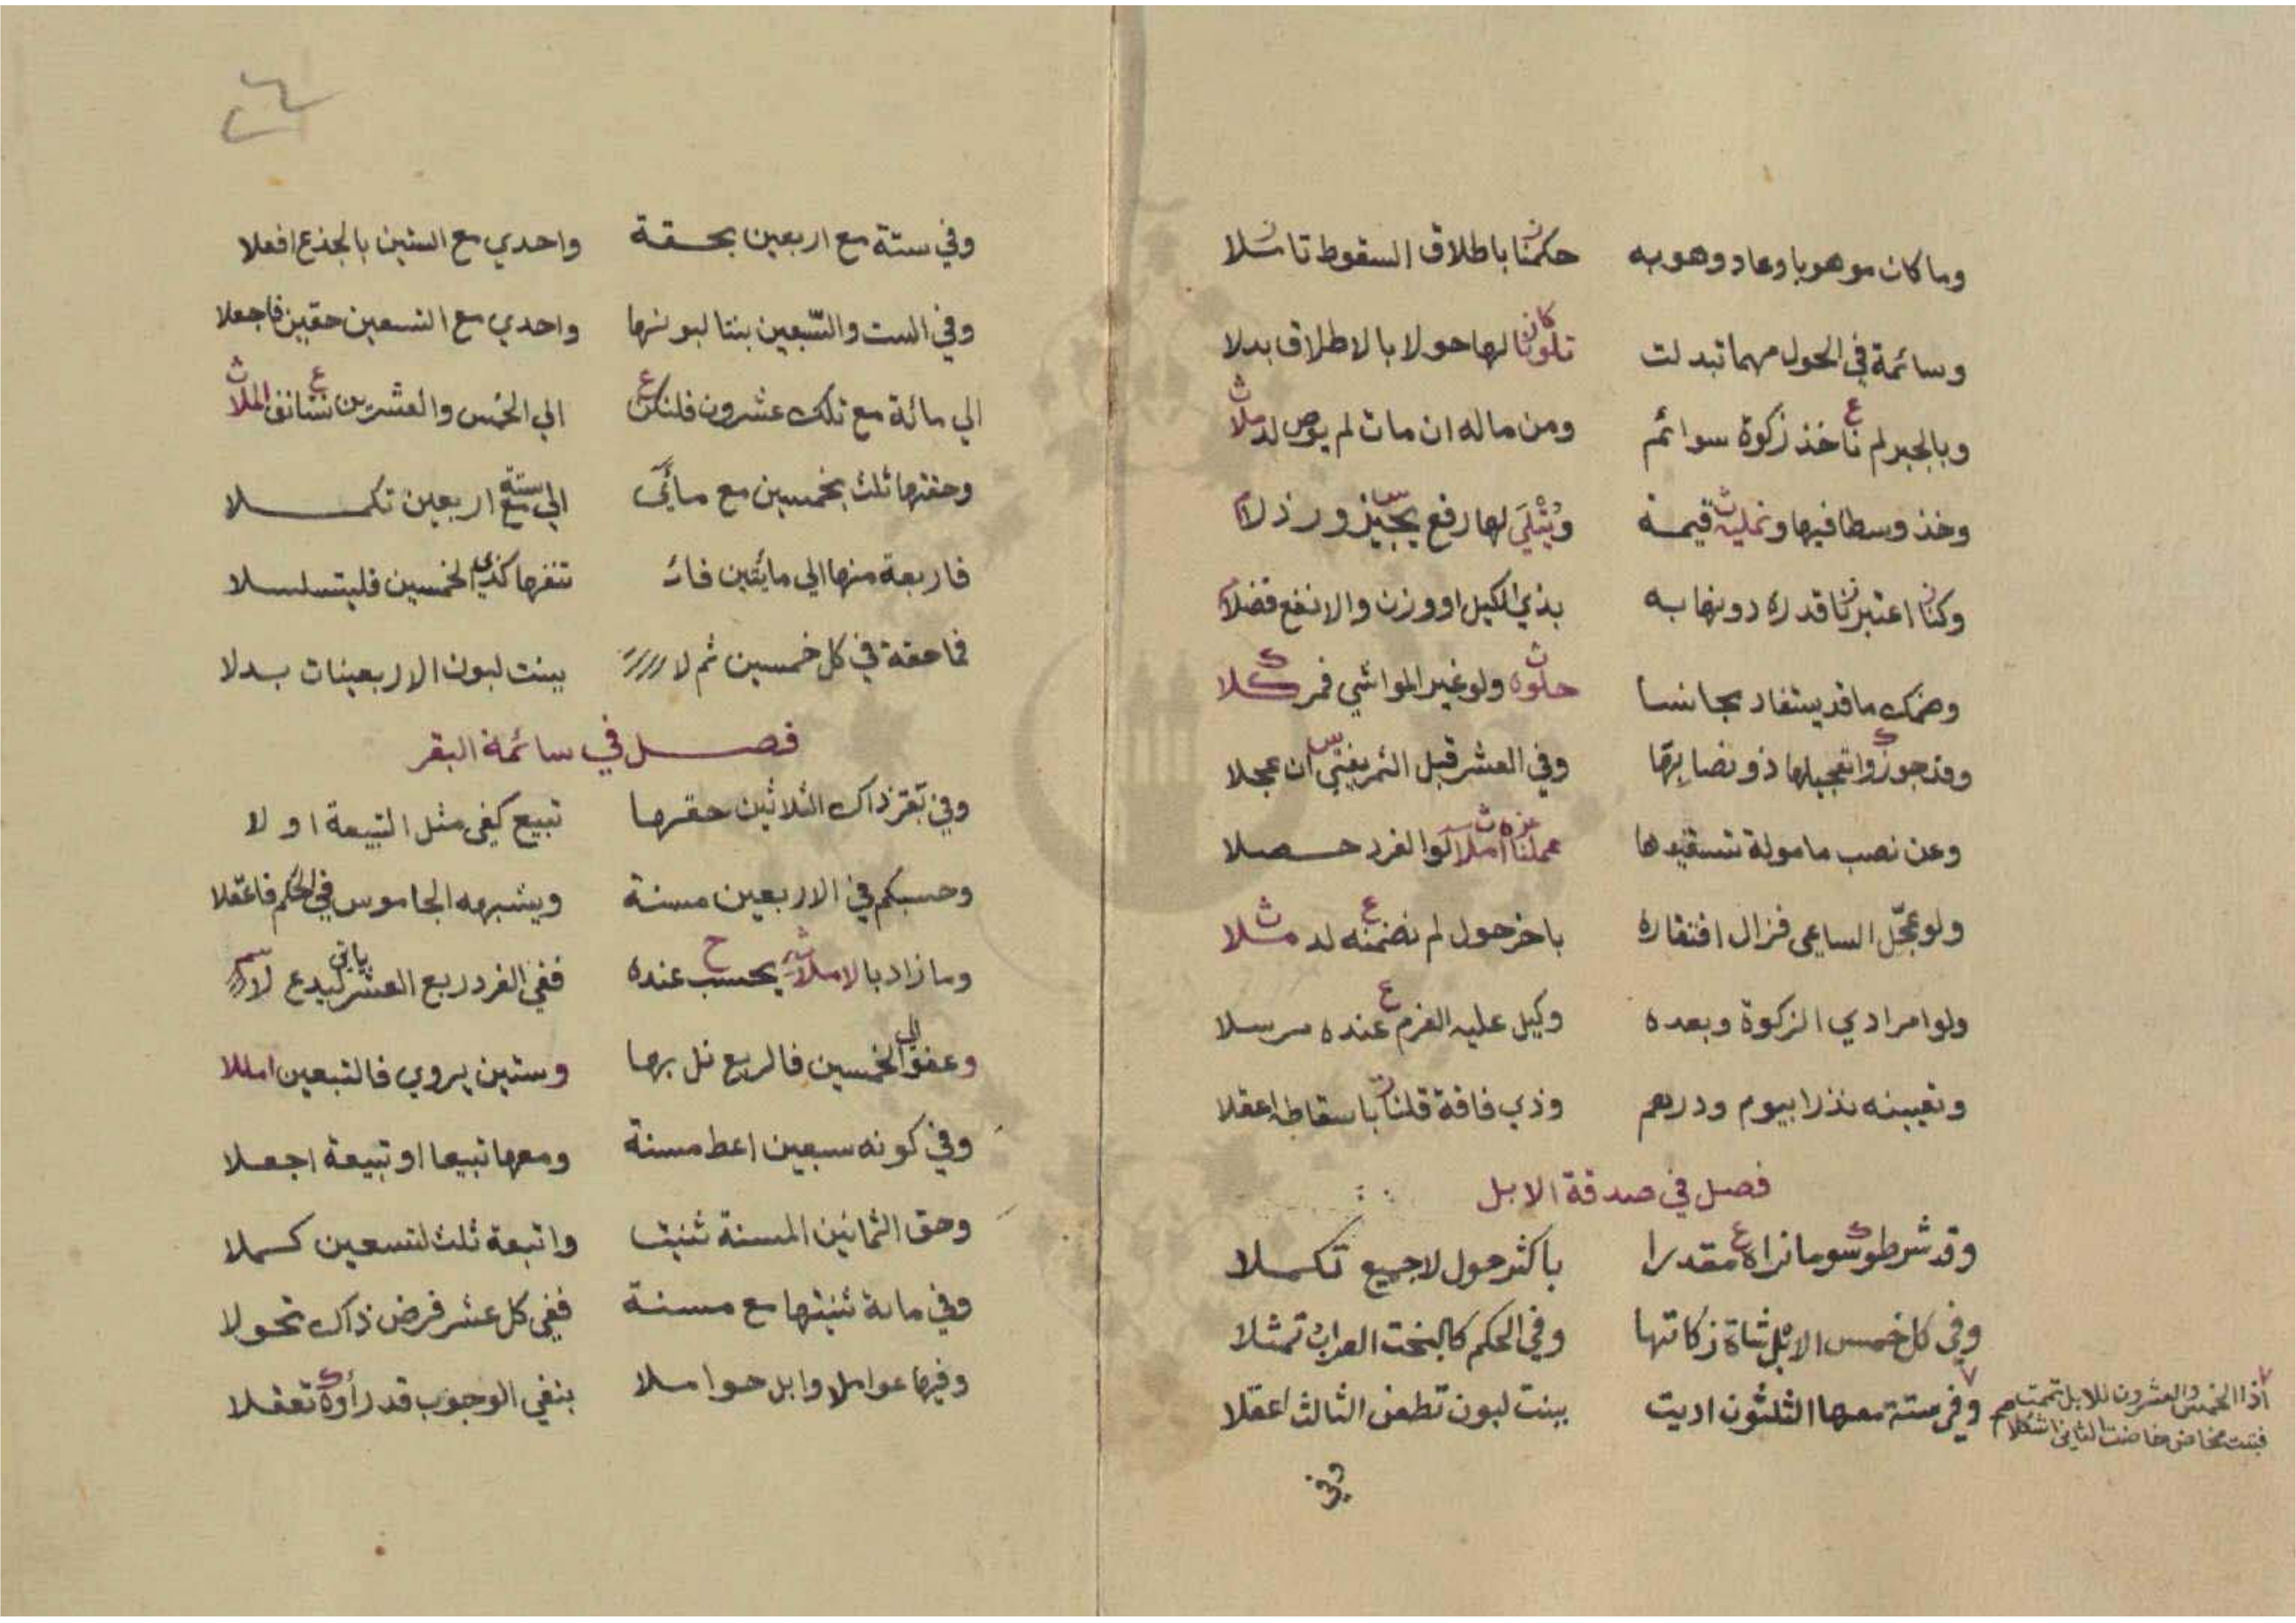 وما كان موهوبا وعاد وهوبه حكمنا باطلاق السقوط تاملا
وسائمة في الحول مهما تبدلت تلونا لها حولا بالاطلاق بدلا
وبالجبر لم ناخذ زكوة سوائم ومن ماله ان مات لم يوص لد ملا
وخذ وسطا فيها ونمليه قيمة لها رفع يجيز ورذلا
وكنا اعتبرنا قدره دونها به بذي الكيل او وزن والانفع فضلا
وضمك ما قد يستفاد مجانسا حلوه ولو غير المواشي فمر كلا
وقد جوزوا تعجيلها ذو نصابها وفي العشر قبل الثمر يفتي ان عجلا
وعن نصب مامولة تستفيدها عملنا املا لو الفرد حصلا
ولو عجّل الساعي فزال افتقاره باخر حول لم نضمنه لد مثلا
ولو امر ادي الزكوة وبعده وكيل عليه الغرم عنده مرسلا
وتعيينه نذرا بيوم ودرهم وذي فاقة قلنا باسقاطه اعقلا
فصل في صدقة الابل
وقد شرطوا سوما نراه مقدرا باكثر حول لا جميع تكملا
وفي كل خمس الابل شاة زكاتها وفي الحكم كالبخت العراب تمثلا
وفي ستة معها الثلثون اديت ببنت لبون تطعن الثالث اعقلا
اذا الخمس والعشرون للابل تمت
فبنت مخاض خاضت الثاني اشكلا
وفي
٢٦
وفي ستة مع اربعين بحقة واحدي مع الستين بالجذع افعلا
وفي الست والسّبعين بنتا لبونها واحدي مع التسعين حقين فاجعلا
الي مائة مع تلك عشرون فلنكن الي الخمس والعشرين نستانف الملا
وحقتها ثلث بخمسين مع مائة الي ستة مع اربعين تكملا
فاربعة منها الي مايتين فان تنفرها كذي الخمسين فليتسلسلا
فما حقة في كل خمسين ثم لا ببنت لبون الاربعينات بدلا
فصل في سائمة البقر
وفي بقر ذاك الثلاثين حقرها تبيع كفي مثل التبيعة او لا
وحسبكم في الاربعين مسنة ويشبهه الجاموس في الحكم فاعقلا
وما زاد بالاملا يحسب عنده ففي الفرد ربع العشر ياتي
وعفو الي الخمسين فالربع نل بها وستين يروي فالتبعين امللا
وفي كونه سبعين اعط مسنة ومعها تبيعا او تبيعة اجعلا
وحق الثمانين المسنة ثنيت واتبعة ثلث لتسعين كملا
وفي مائة ثنيتها مع مسنة ففي كل عشر فرض ذاك تحولا
وفيها عوامل وابل حواملا بنفي الوجوب قد رأوه تعقلا